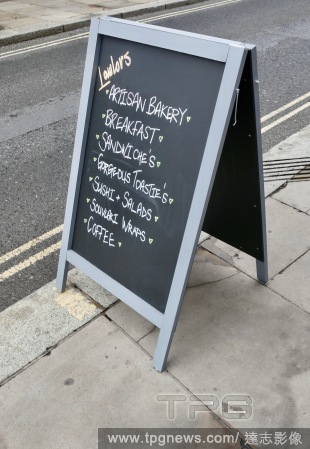 Lawlors
ARTISAN BAKERY
BREAKFAST
SANDWICHE'S
GORGEOUS TOASTIE'S
SUSHI + SALADS
SOUVLAKI WRAPS
COFFEE
TPG
www.tpgnews.com/ 達志影像